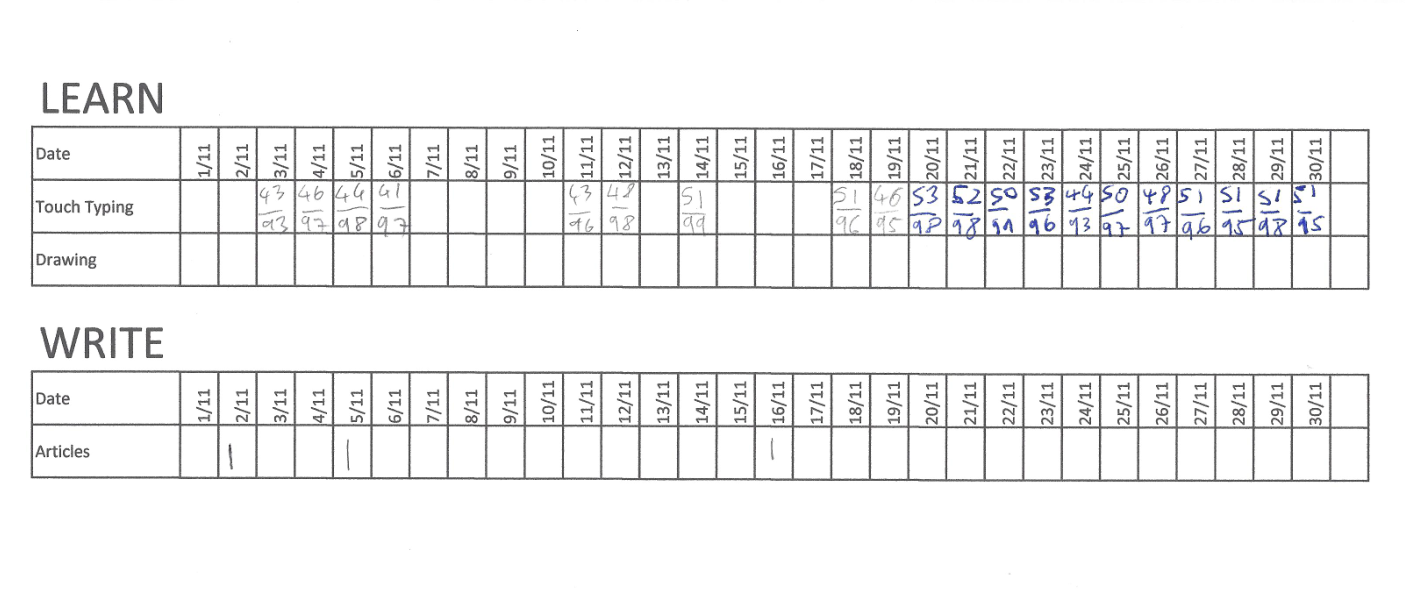 LEARN
Date 1/11 2/11 3/11 4/11 5/11 6/11 7/11 8/11 9/11 10/11 11/11 12/11 13/11 14/11 15/11 16/11 17/11 18/11 19/11 20/11 21/11 22/11 23/11 24/11 25/11 26/11 27/11 28/11 29/11 30/11
Touch Typing 43/93 46/97 44/98 41/97 43/96 48/98 51/99 51/96 46/95 53/98 52/98 50/99 53/96 44/93 50/97 48/97 51/96 51/95 51/98 51/95
Drawing
WRITE
Date 1/11 2/11 3/11 4/11 5/11 6/11 7/11 8/11 9/11 10/11 11/11 12/11 13/11 14/11 15/11 16/11 17/11 18/11 19/11 20/11 21/11 22/11 23/11 24/11 25/11 26/11 27/11 28/11 29/11 30/11
Articles | | |